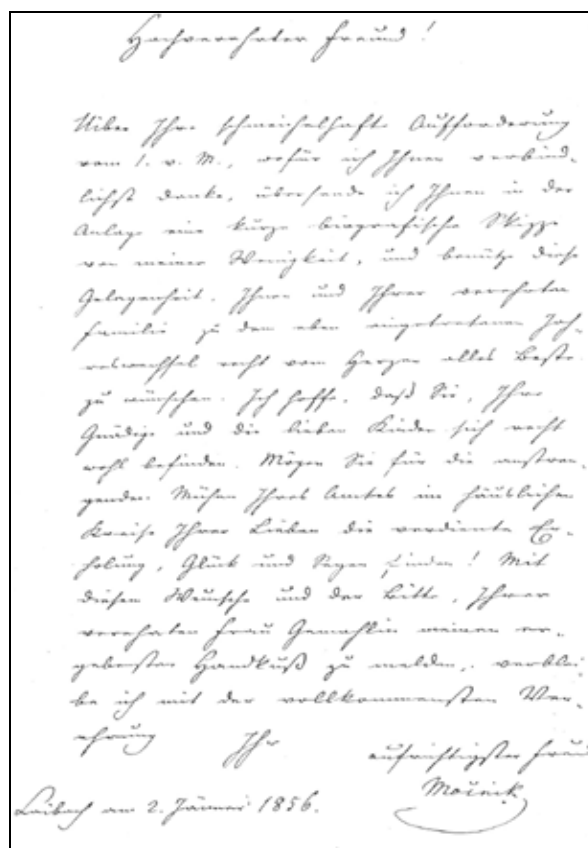 Hochverehrter Freund!
Uiber Ihre schmeichelhafte Aufforderung
vom 1. v. M., wofür ich Ihnen verbind-
lichst danke, übersende ich Ihnen in der
Anlage eine kurze biografische Skizze
von meiner Wenigkeit, und benütze diese
Gelegenheit, Ihnen und Ihrer verehrten
Familie zu dem eben eingetretenen Jah-
reswechsel recht vom Herzen alles Beste
zu wünschen. Ich hoffe, daß Sie, Ihre
Gnädige und die lieben Kinder sich recht
wohl befinden. Mögen Sie für die anstren-
genden Mühen Ihres Amtes im häuslichen
Kreise Ihrer Lieben die verdiente Er-
holung, Glück und Segen finden! Mit
diesem Wunsche und der Bitte, Ihrer
verehrten Frau Gemahlin meinen er-
gebensten Handkuß zu melden, verblei-
be ich mit der vollkommensten Ver-
ehrung Ihr
aufrichtigster Freund
Močnik
Laibach am 2. Jänner 1856.